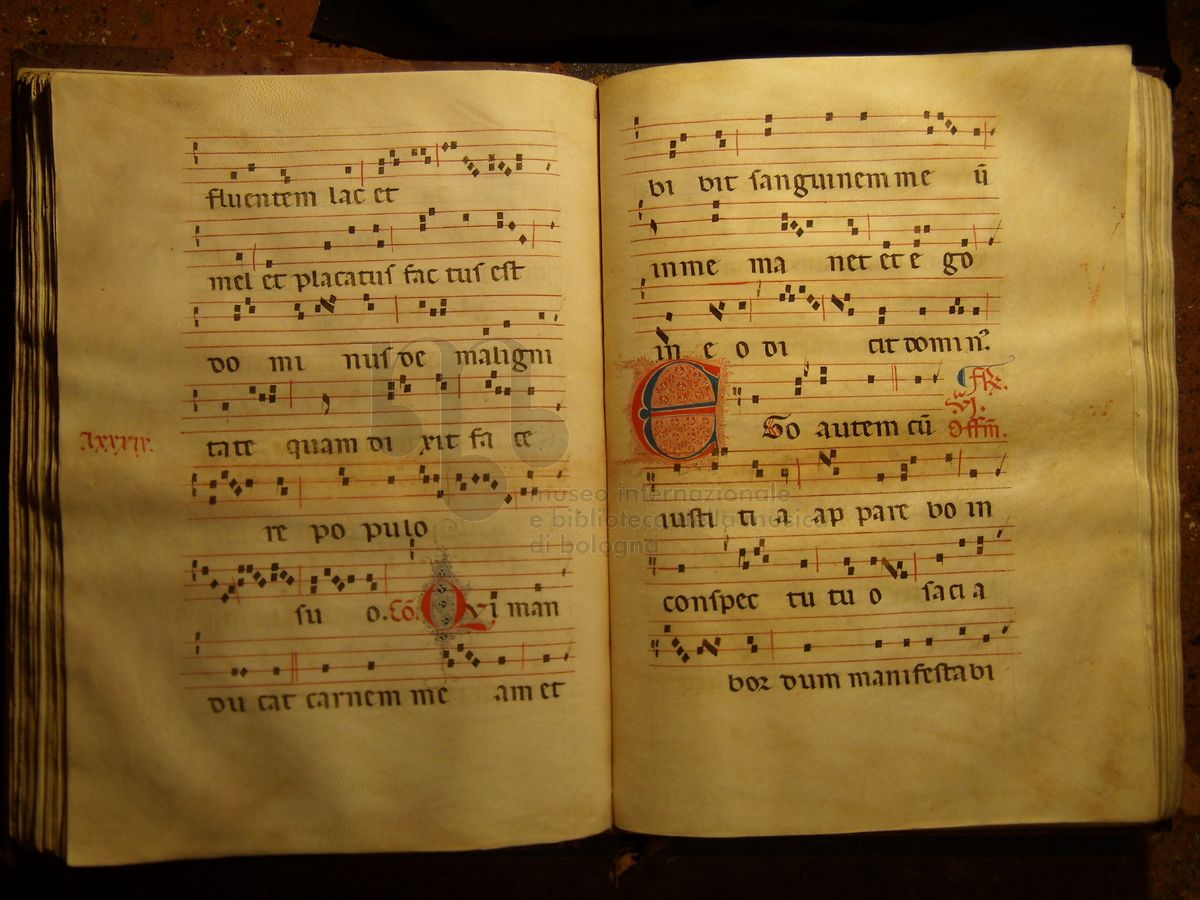 fluentem lac et
mel et placatus fac tus est
do mi nus de maligni
tate quam di xit fa ce
re po pulo
su o. Co. Qui man
du cat carnem me am et
lxxxiv.
bi bit sanguinem me ū
in me ma net et e go
in e o di cit domin⁹.
Ego autem cū
iusti ti a ap pare bo in
conspec tu tu o sacia
bor dum manifestabi
museo internazionale
e biblioteca della musica
di bologna